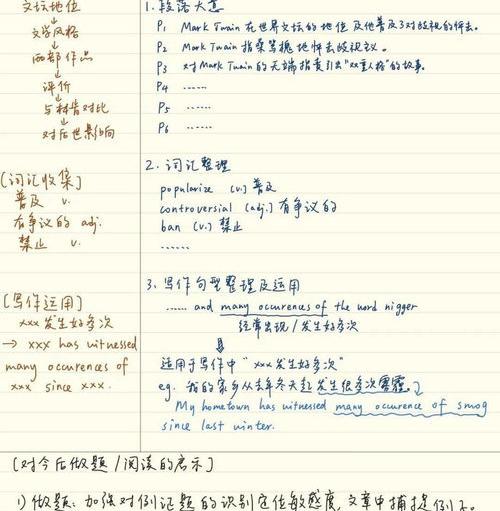 文坛地位
↓
文学风格
↓
西部作品
↓
评价
↓
与林肯对比
↓
对后世影响
[词汇收集]
普及 v.
有争议的 adj.
禁止 v.
[写作运用]
xxx 发生好多次
→ xxx has witnessed
many occurences of
xxx since xxx.
1. 段落大意
P1 Mark Twain 在世界文坛的地位及他普及了对歧视的抨击。
P2 Mark Twain 指桑骂槐地抨击歧视议。
P3 对Mark Twain的无端指责引出“双重人格”的故事。
P4 ……
P5 ……
P6 ……
2. 词汇整理
popularize (v.) 普及
controversial (adj.) 有争议的
ban (v.) 禁止
……
3. 写作句型整理及运用
…… and many occurences of the word nigger
经常出现/发生好多次
↓
适用于写作中“xxx发生好多次”
eg. 我的家乡从去年冬天起发生很多次雾霾.
My hometown has witnessed many occurence of smog
since last winter.
[对今后做题/阅读的启示]
1) 做题: 加强对例证题的识别定位敏感度, 文章中捕捉例子